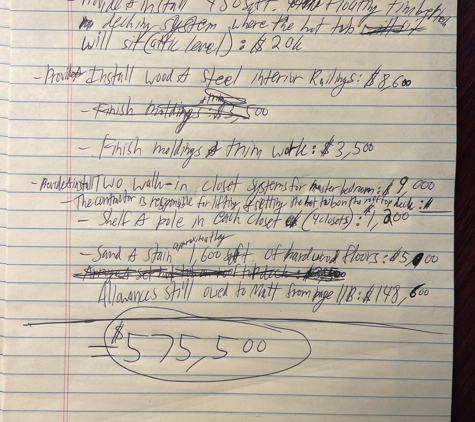 Provide & Install 480 sqft. floating timbertech
decking system where the hot tub
will sit (attic level): $20k
- Provide & Install Wood & Steel Interior Railings: $8,600
- Finish moldings & trim work: $3,500
- Provide & install Two walk-in closet systems for master bedroom: $9,000
- The contractor is responsible for lifting & setting the hot tub on the roof top deck: $
- Shelf & pole in each closet (4 closets): $1,200
- Sand & stain approximately 1,600 sqft. of hardwood floors: $5,
Allowances still owed to Matt from page 11B: $148,600
$575,500